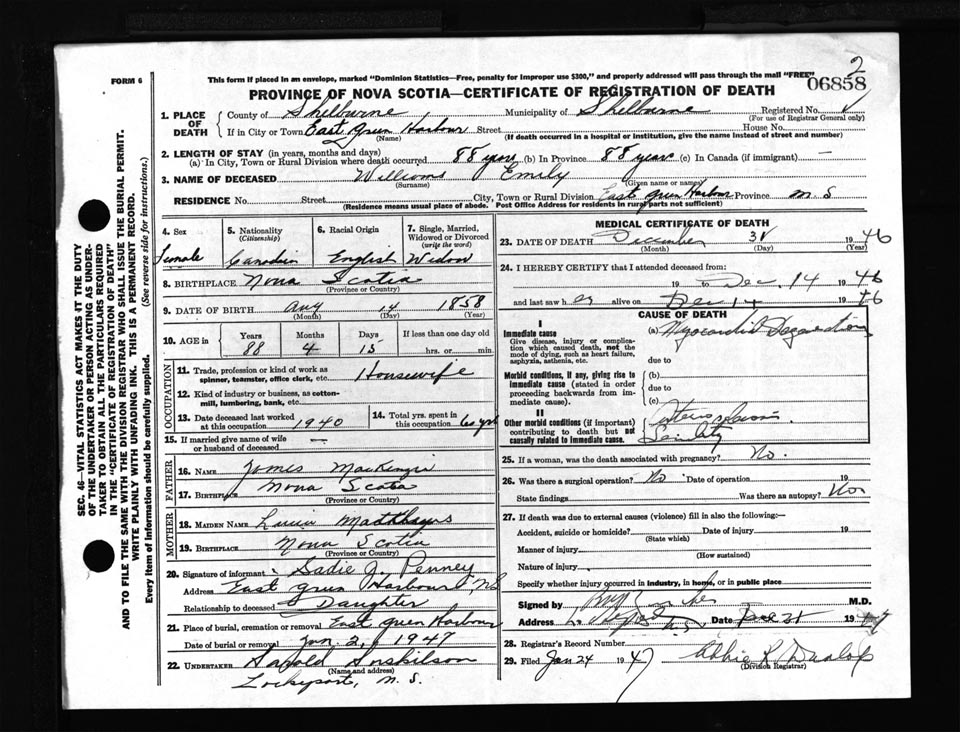 2
FORM 6
This form if placed in an envelope, marked "Dominion Statistics—Free, penalty for improper use $300," and properly addressed will pass through the mail "FREE"
06858
PROVINCE OF NOVA SCOTIA—CERTIFICATE OF REGISTRATION OF DEATH
SEC. 46—VITAL STATISTICS ACT MAKES IT THE DUTY
OF THE UNDERTAKER OR PERSON ACTING AS UNDER-
TAKER TO OBTAIN ALL THE PARTICULARS REQUIRED
IN THE "CERTIFICATE OF REGISTRATION OF DEATH"
AND TO FILE THE SAME WITH THE DIVISION REGISTRAR WHO SHALL ISSUE THE BURIAL PERMIT.
WRITE PLAINLY WITH UNFADING INK. THIS IS A PERMANENT RECORD.
Every item of Information should be carefully supplied. (See reverse side for instructions.)
1. PLACE OF DEATH
County of Shelburne Municipality of Shelburne Registered No.
(For use of Registrar General only)
If in City or Town East Green Harbour Street House No.
(Name) (If death occurred in a hospital or institution, give the name instead of street and number)
2. LENGTH OF STAY (in years, months and days)
(a) In City, Town or Rural Division where death occurred 88 years (b) In Province 88 years (c) In Canada (if immigrant) —
3. NAME OF DECEASED Williams Emily
(Surname) (Given name or names)
RESIDENCE No. Street City, Town or Rural Division East Green Harbour Province N. S
(Residence means usual place of abode. Post Office Address for residents in rural parts not sufficient)
4. Sex
Female
5. Nationality
(Citizenship)
Canadian
6. Racial Origin
English
7. Single, Married,
Widowed or Divorced
(write the word)
Widow
8. BIRTHPLACE Nova Scotia
(Province or Country)
9. DATE OF BIRTH Aug 14 1858
(Month) (Day) (Year)
10. AGE in
Years Months Days If less than one day old
88 4 hrs. or min.
OCCUPATION
11. Trade, profession or kind of work as
spinner, teamster, office clerk, etc. Housewife
12. Kind of industry or business, as cotton-
mill, lumbering, bank, etc.
13. Date deceased last worked
at this occupation 1940
14. Total yrs. spent in
this occupation 60 yrs
15. If married give name of wife
or husband of deceased —
FATHER
16. NAME James MacKenzie
17. BIRTHPLACE Nova Scotia
(Province or Country)
MOTHER
18. MAIDEN NAME Matthews
19. BIRTHPLACE Nova Scotia
(Province or Country)
20. Signature of informant Sadie J. Penney
Address East Green Harbour, NS
Relationship to deceased Daughter
21. Place of burial, cremation or removal East Green Harbour
Date of burial or removal Jan. 2, 1947
22. UNDERTAKER Harold
(Name and address)
Lockeport, N. S.
MEDICAL CERTIFICATE OF DEATH
23. DATE OF DEATH December 31 1946
(Month) (Day) (Year)
24. I HEREBY CERTIFY that I attended deceased from:
19 to Dec. 14 1946
and last saw her alive on Dec 14 1946
CAUSE OF DEATH
I
Immediate cause
Give disease, injury or complica-
tion which caused death, not the
mode of dying, such as heart failure,
asphyxia, asthenia, etc.
(a) Myocardial Degeneration
due to
Morbid conditions, if any, giving rise to
immediate cause (stated in order
proceeding backwards from im-
mediate cause).
(b)
due to
(c)
II
Other morbid conditions (if important)
contributing to death but not
causally related to immediate cause.
Senility
25. If a woman, was the death associated with pregnancy? No.
26. Was there a surgical operation? No Date of operation 19
State findings Was there an autopsy?
27. If death was due to external causes (violence) fill in also the following:—
Accident, suicide or homicide? Date of injury 19
(State which)
Manner of injury
(How sustained)
Nature of injury
Specify whether injury occurred in industry, in home, or in public place
Signed by M.D.
Address Date Dec 31 19
28. Registrar's Record Number
29. Filed Jan 24 1947 Abbie R Dunlop
(Division Registrar)